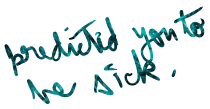 predicted you to
be sick.